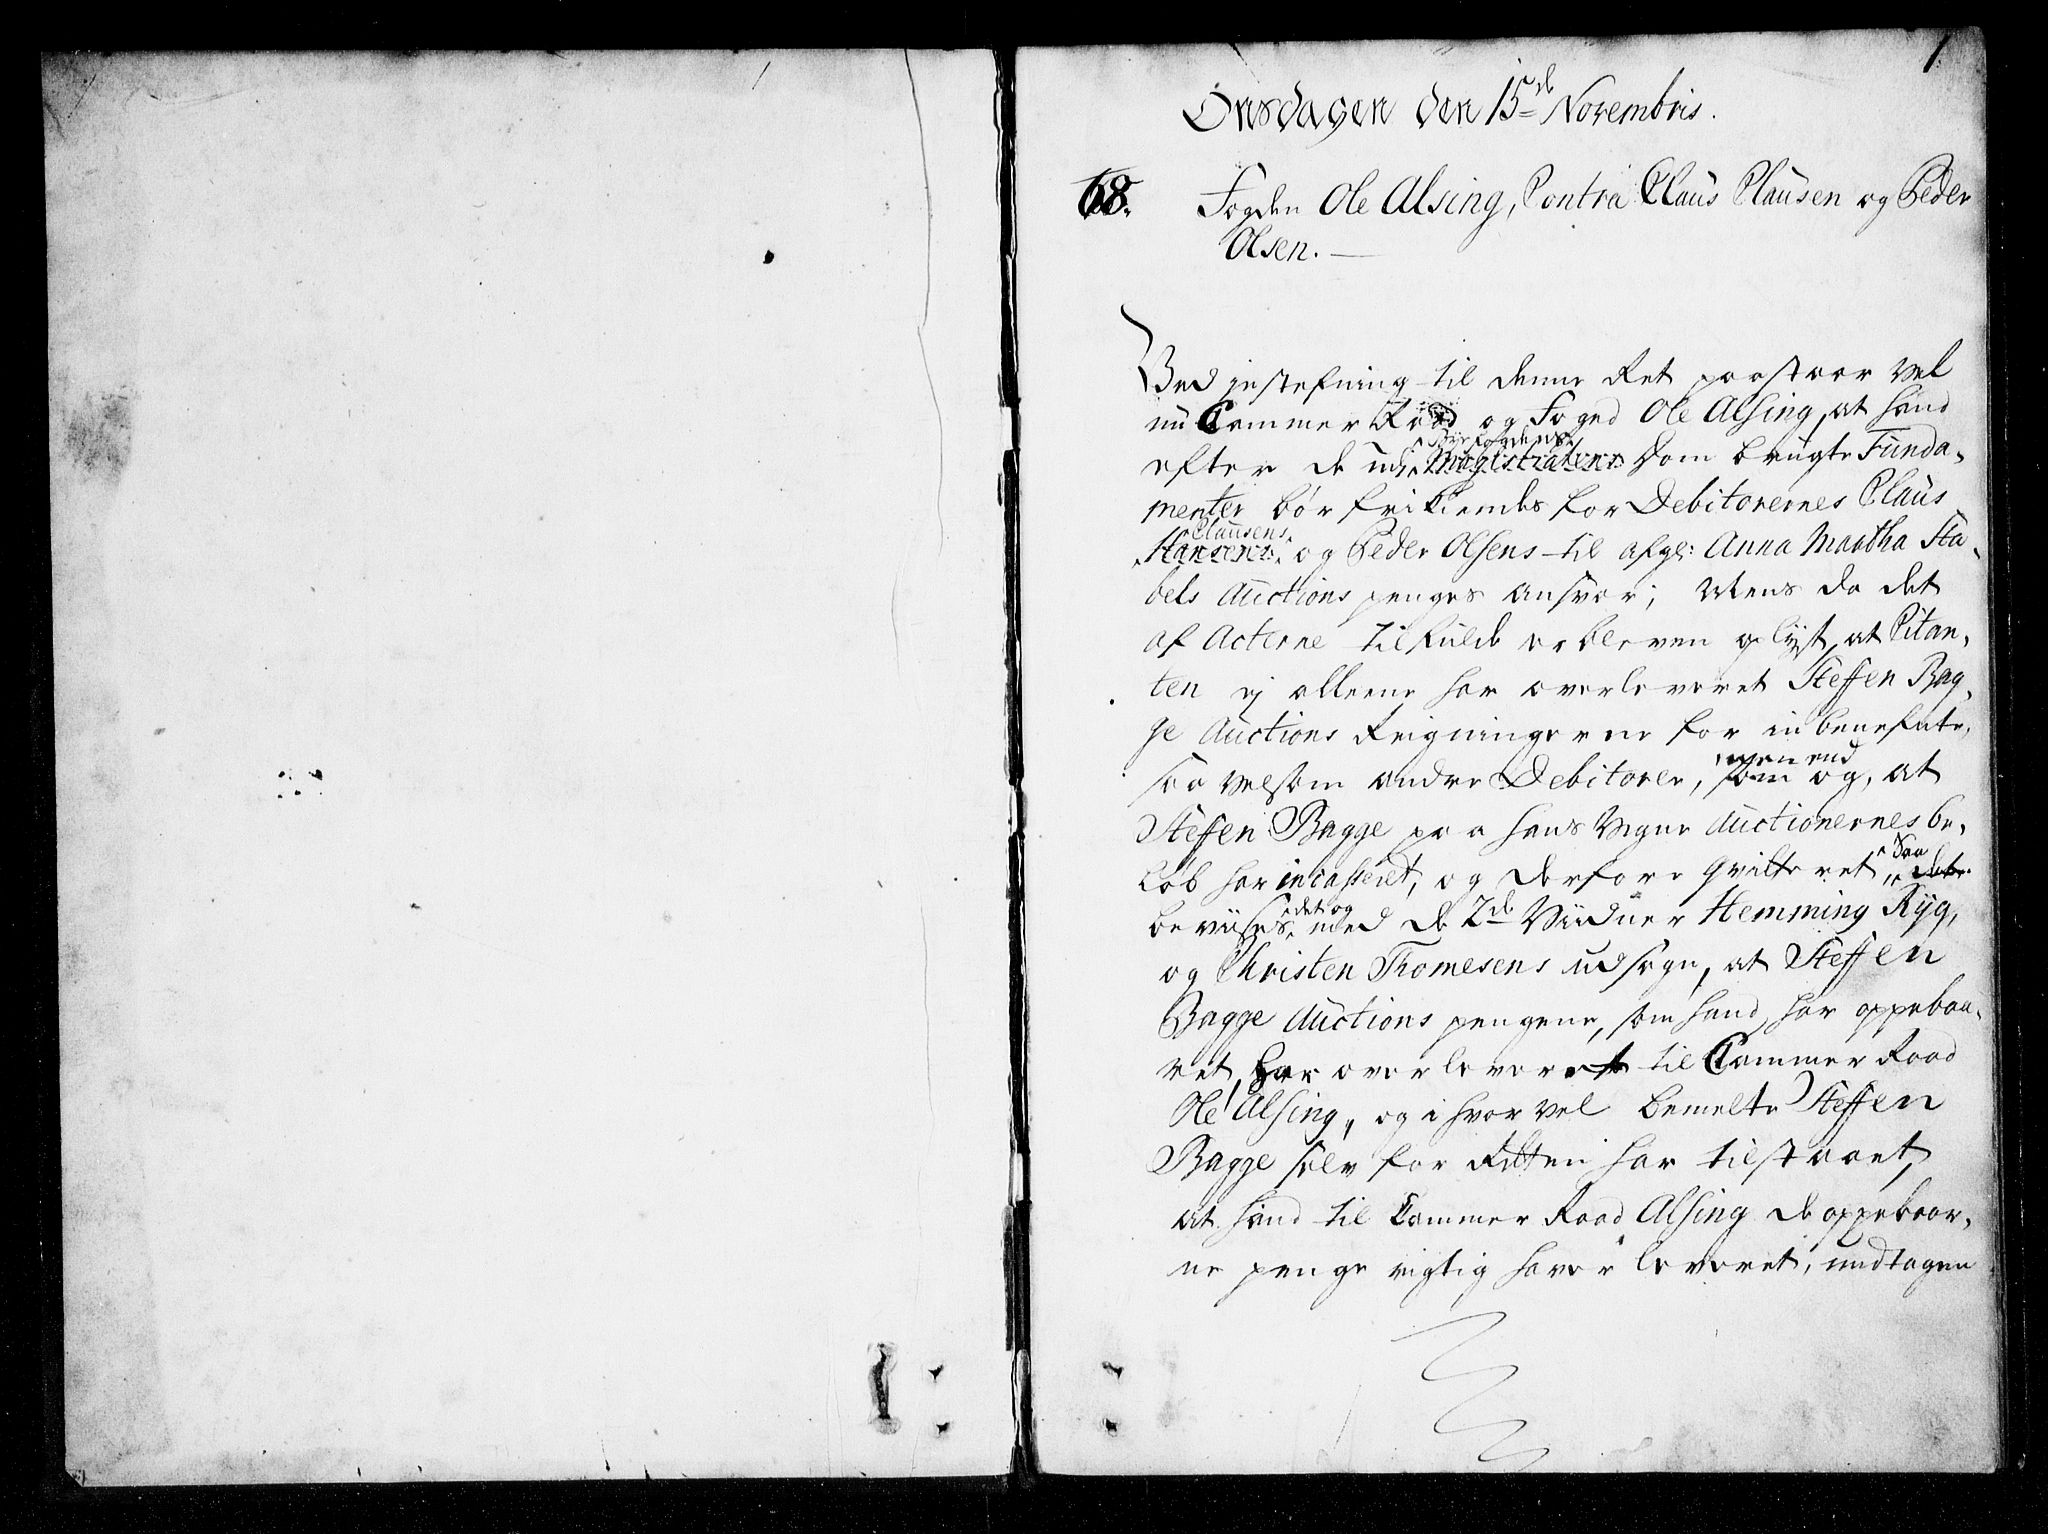 1.
Onsdagen den 15de Novembris.
68. Fogden Ole Alsing, Contra Claus Clausen og Peder
Olsen. —
Ved jnstefning til denne Ret paastaar vel
nu Cammer Raad og Foged Ole Alsing, at hand
Byefogdens
efter de udj Magistratens Dom brugte Funda-
menter bør frikiendes for Debitorernes Claus
Clausens
Hansens og Peder Olsens til afgl: Anna Maatha Sta-
bels Auctions penges Ansvar; Mens da det
af Acterne tilfulde er bleven oplyst, at Citan-
ten ej alleene har overleveret Steffen Bag-
ge Auctions Reigningerne for innbenefnte,
men end
saa velsom andre Debitorer, som og, at
Steffen Bagge paa hans Vegne Auctionernes be-
Saa
løb har incasseret, og derfore qvitteret, det
det og
beviises med de 2de Viidner Hemming Ryg,
og Christen Thomesens udsagn, at Steffen
Bagge Auctions pengene, som hand har oppebaa-
ret, har overleveret til Cammer Raad
Ole Alsing, og i hvor vel bemelte Steffen
Bagge selv for Retten har tilstaaet,
at hand til Cammer Raad Alsing de oppebaar-
ne penge rigtig haver leveret, undtagen